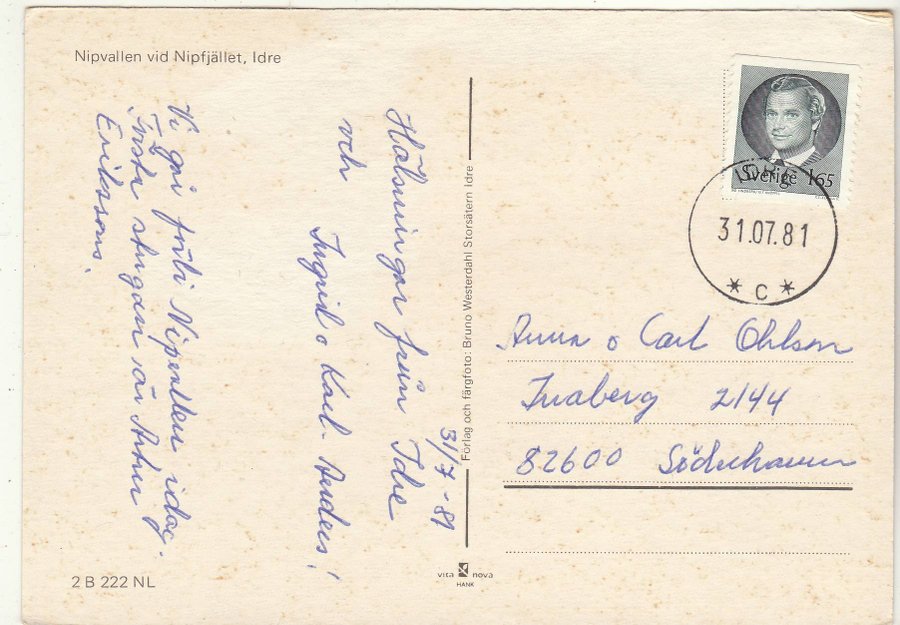 Nipvallen vid Nipfjället, Idre
31/7-81
Hälsningar från Idre
och
Ingrid o Karl-Anders!
Vi går förbi Nipvallen idag.
Första stugan är Arthur
Erikssons.
2 B 222 NL
Förlag och färgfoto: Bruno Westerdahl Storsätern Idre
vita nova
HANK
Sverige 165
IDRE
31.07.81
* C *
Anna o Carl Ohlson
82600 Söderhamn